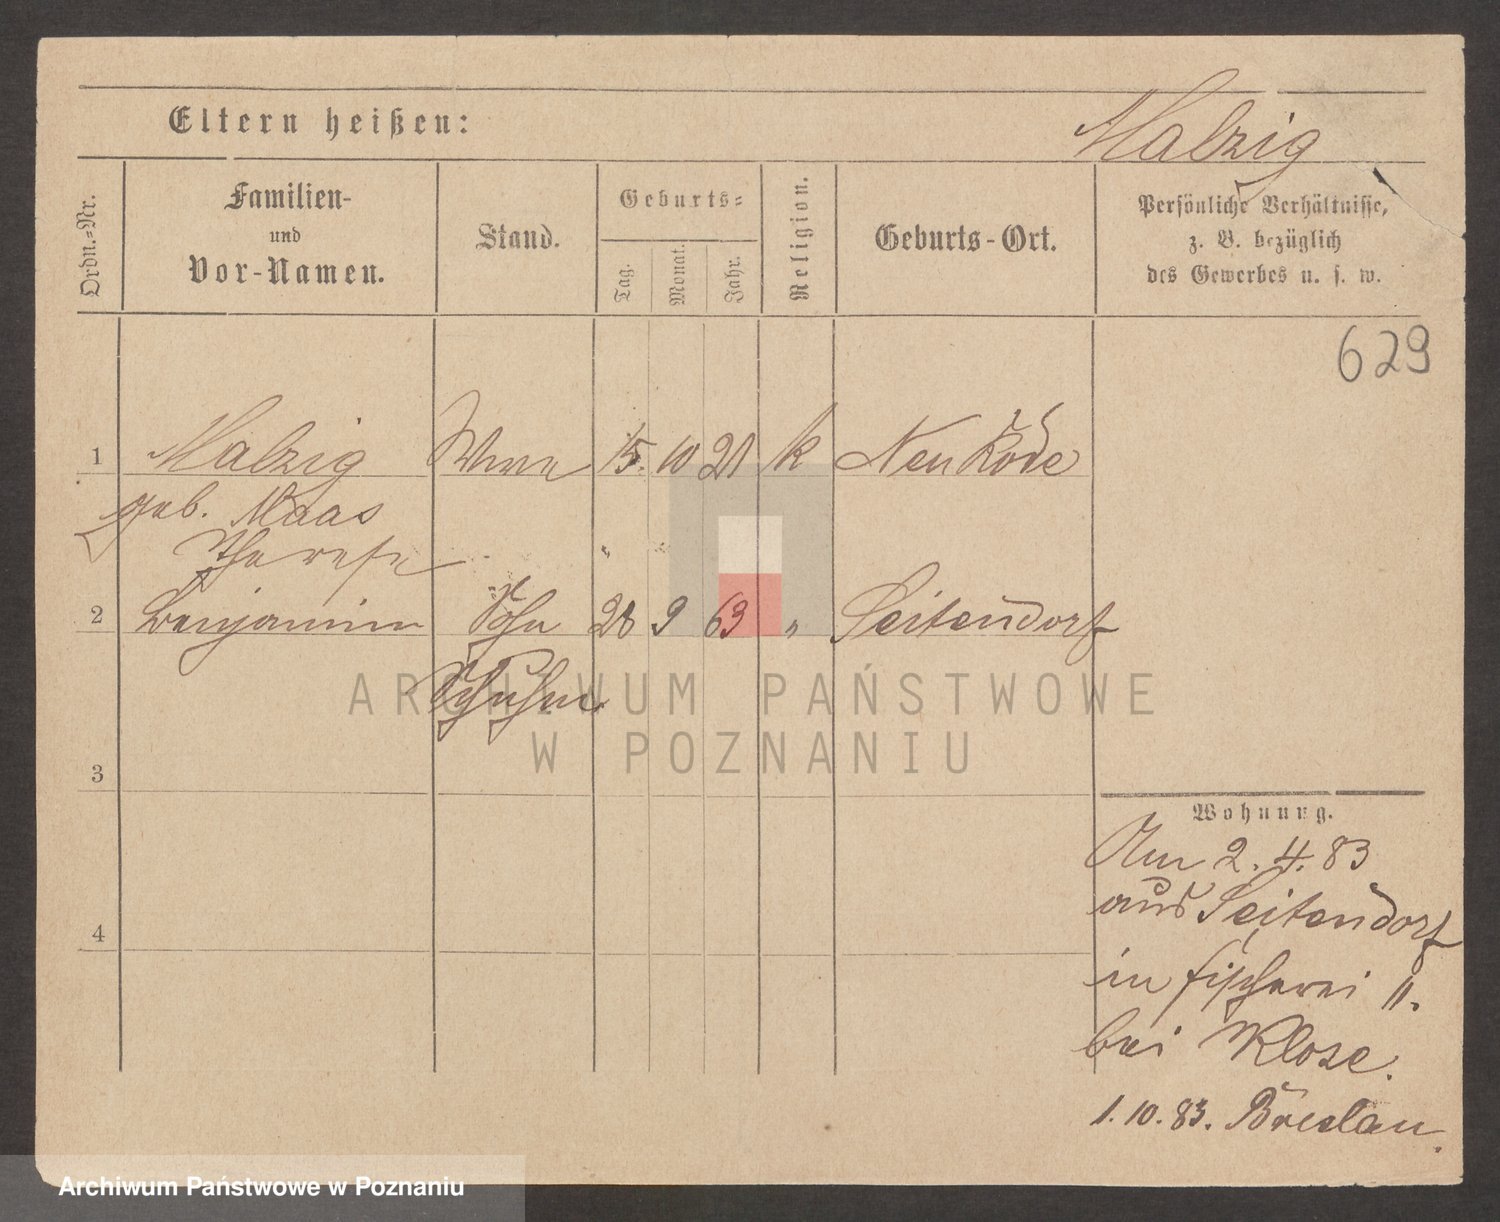 Eltern heißen:
Malzig
Ordn.=Nr.
Familien-
und
Vor-Namen.
Stand.
Geburts=
Tag.
Monat.
Jahr.
Religion.
Geburts-Ort.
Persönliche Verhältnisse,
z. B. bezüglich
des Gewerbes u. s. w.
629
1 Malzig Wwe 15. 10 21 k Neu Röde
geb. Maas
Therese
2 Benjamin Sohn 28 9 63 " Seitendorf
Schuhm.
ARCHIWUM PAŃSTWOWE
W POZNANIU
3
4
Wohnung.
Am 2. 4. 83
aus Seitendorf
in Fischerei 11.
bei Klose.
1. 10. 83. Breslau.
Archiwum Państwowe w Poznaniu